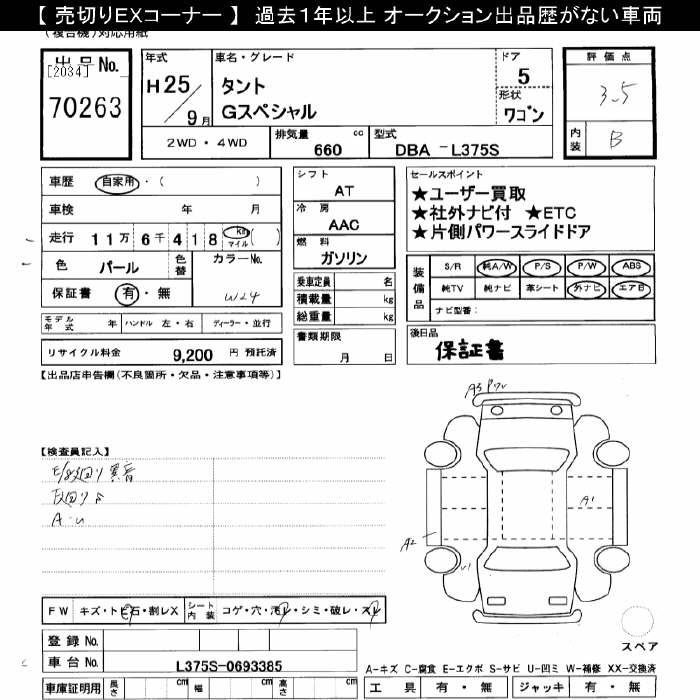 【 売切りEXコーナー 】 過去1年以上 オークション出品歴がない車両
(複合機)対応用紙
出品No.
[2034]
70263
年式
H25/9月
車名・グレード
タント
Gスペシャル
ドア
5
形状
ワゴン
評価点
3.5
内装
B
2WD・4WD
排気量 cc
660
型式
DBA -L375S
車歴 自家用・( )
車検 年 月
走行 11万 6千 418 km マイル ( )
色 パール
色替
カラーNo.
W24
保証書 有・無
モデル年式 年
ハンドル 左・右
ディーラー・並行
リサイクル料金 9,200 円 預託済
シフト
AT
冷房
AAC
燃料
ガソリン
乗車定員 名
積載量 kg
総重量 kg
書類期限
月 日
セールスポイント
★ユーザー買取
★社外ナビ付 ★ETC
★片側パワースライドドア
装備品
S/R 純A/W P/S P/W ABS
純TV 純ナビ 革シート 外ナビ エアB
ナビ型番:
後日品
保証書
【出品店申告欄(不良箇所・欠品・注意事項等)】
【検査員記入】
A・U
A3
A1
A2
U1
FW キズ・トビ石・割レX
シート内装 コゲ・穴・汚レ・シミ・破レ・スレ
登録No.
車台No. L375S-0693385
車庫証明用 長さ cm 幅 cm 高さ cm
スペア
A-キズ C-腐食 E-エクボ S-サビ U-凹ミ W-補修 XX-交換済
工具 有・無 ジャッキ 有・無